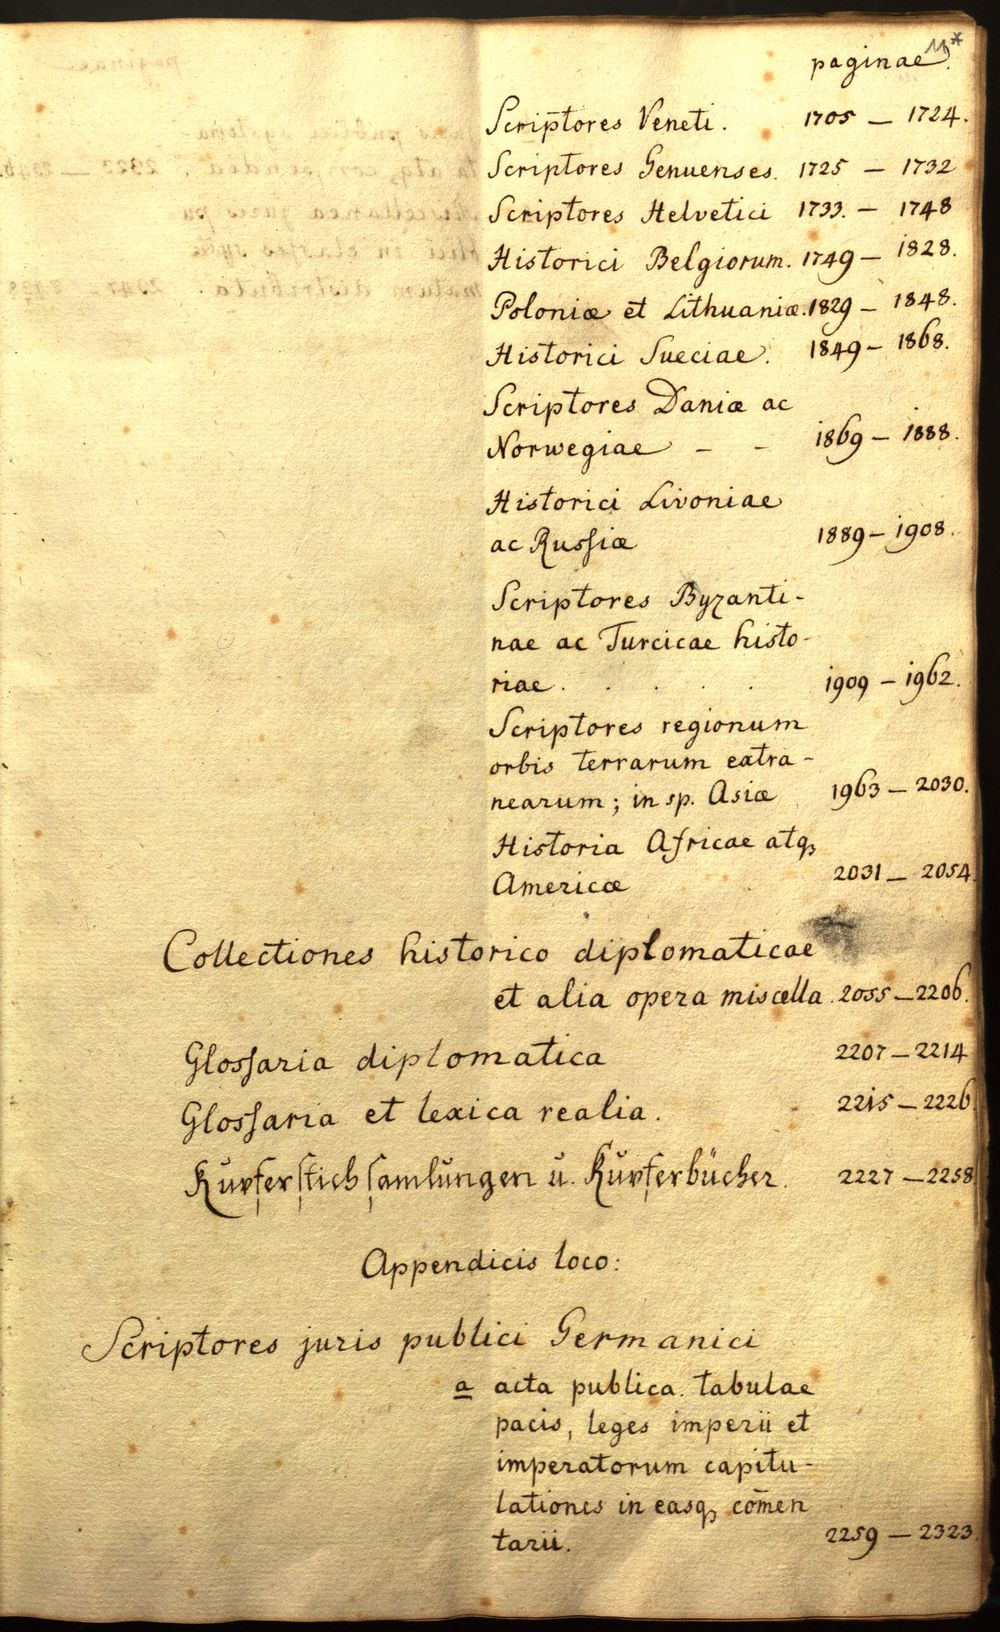 paginae.
Scriptores Veneti. 1705 — 1724.
Scriptores Genuenses. 1725 — 1732
Scriptores Helvetici 1733. — 1748
Historici Belgiorum. 1749 — 1828.
Poloniæ et Lithuaniæ. 1829 — 1848.
Historici Sueciae. 1849 — 1868.
Scriptores Daniæ ac
Norwegiae — — 1869 — 1888.
Historici Livoniae
ac Russiæ 1889 — 1908.
Scriptores Byzanti-
nae ac Turcicae histo-
riae . . . . . 1909 — 1962.
Scriptores regionum
orbis terrarum extra-
nearum; in sp. Asiæ 1963 — 2030.
Historia Africae atq
Americæ 2031 — 2054.
Collectiones historico diplomaticae
et alia opera miscella. 2055 — 2206.
Glossaria diplomatica 2207 — 2214
Glossaria et lexica realia. 2215 — 2226.
Kupferstichsamlungen u. Kupferbücher. 2227 — 2258
Appendicis loco:
Scriptores juris publici Germanici
a acta publica. tabulae
pacis, leges imperii et
imperatorum capitu-
lationes in easq com̄en
tarii. 2259 — 2323.